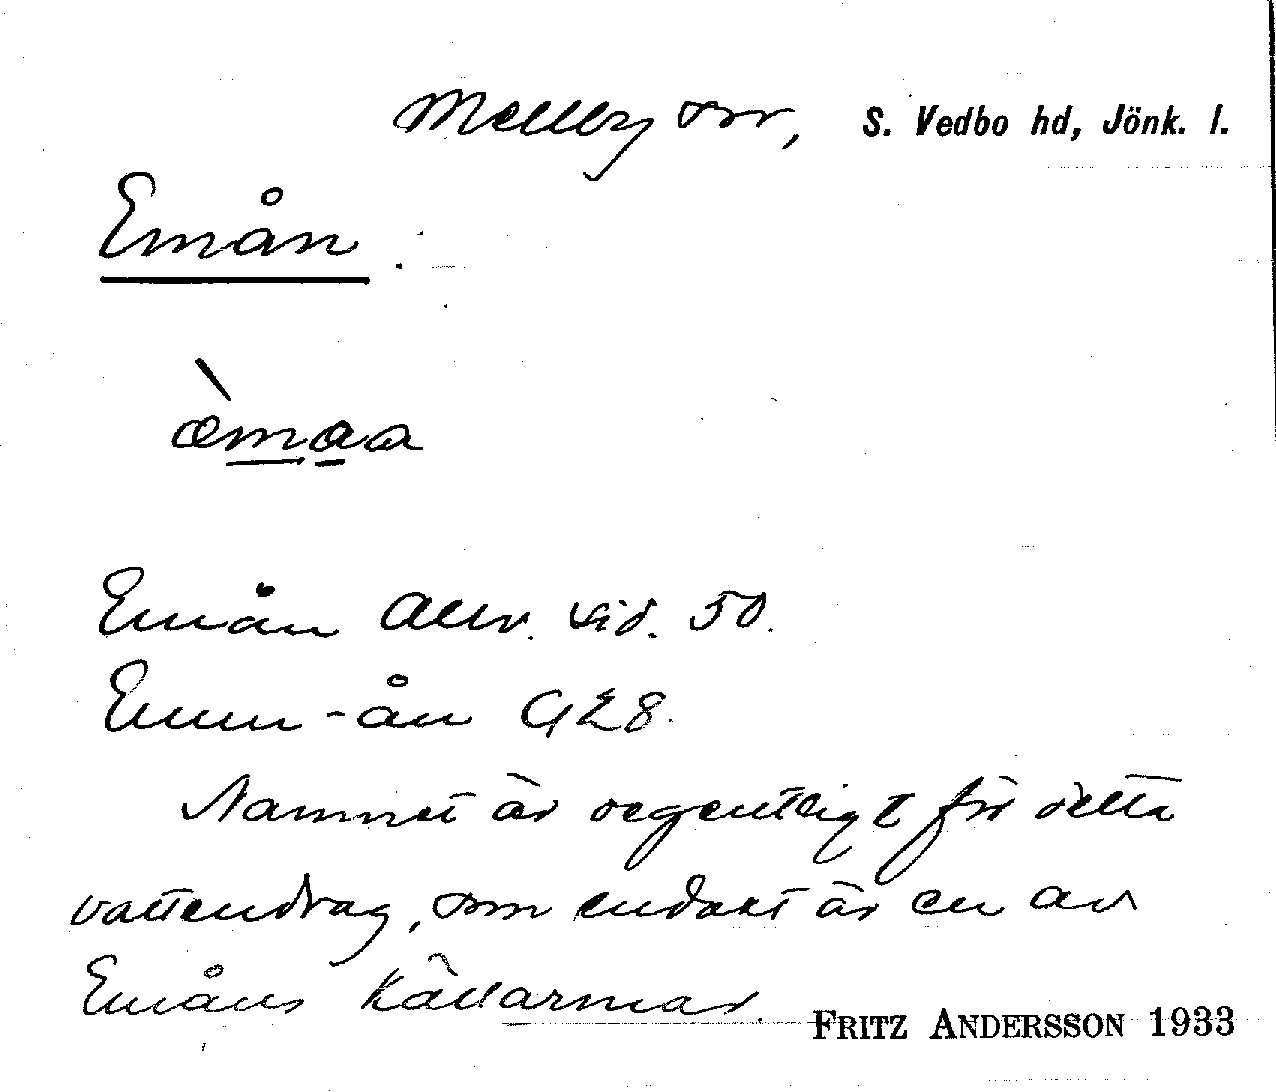 Mellby sn, S. Vedbo hd, Jönk. l.
Emån.
æ̀maa
Emån Allv. sid. 50.
Emm-ån GEB.
Namnet är oegentligt för detta
vattendrag, som endast är en av
Emåns källarmar.
FRITZ ANDERSSON 1933